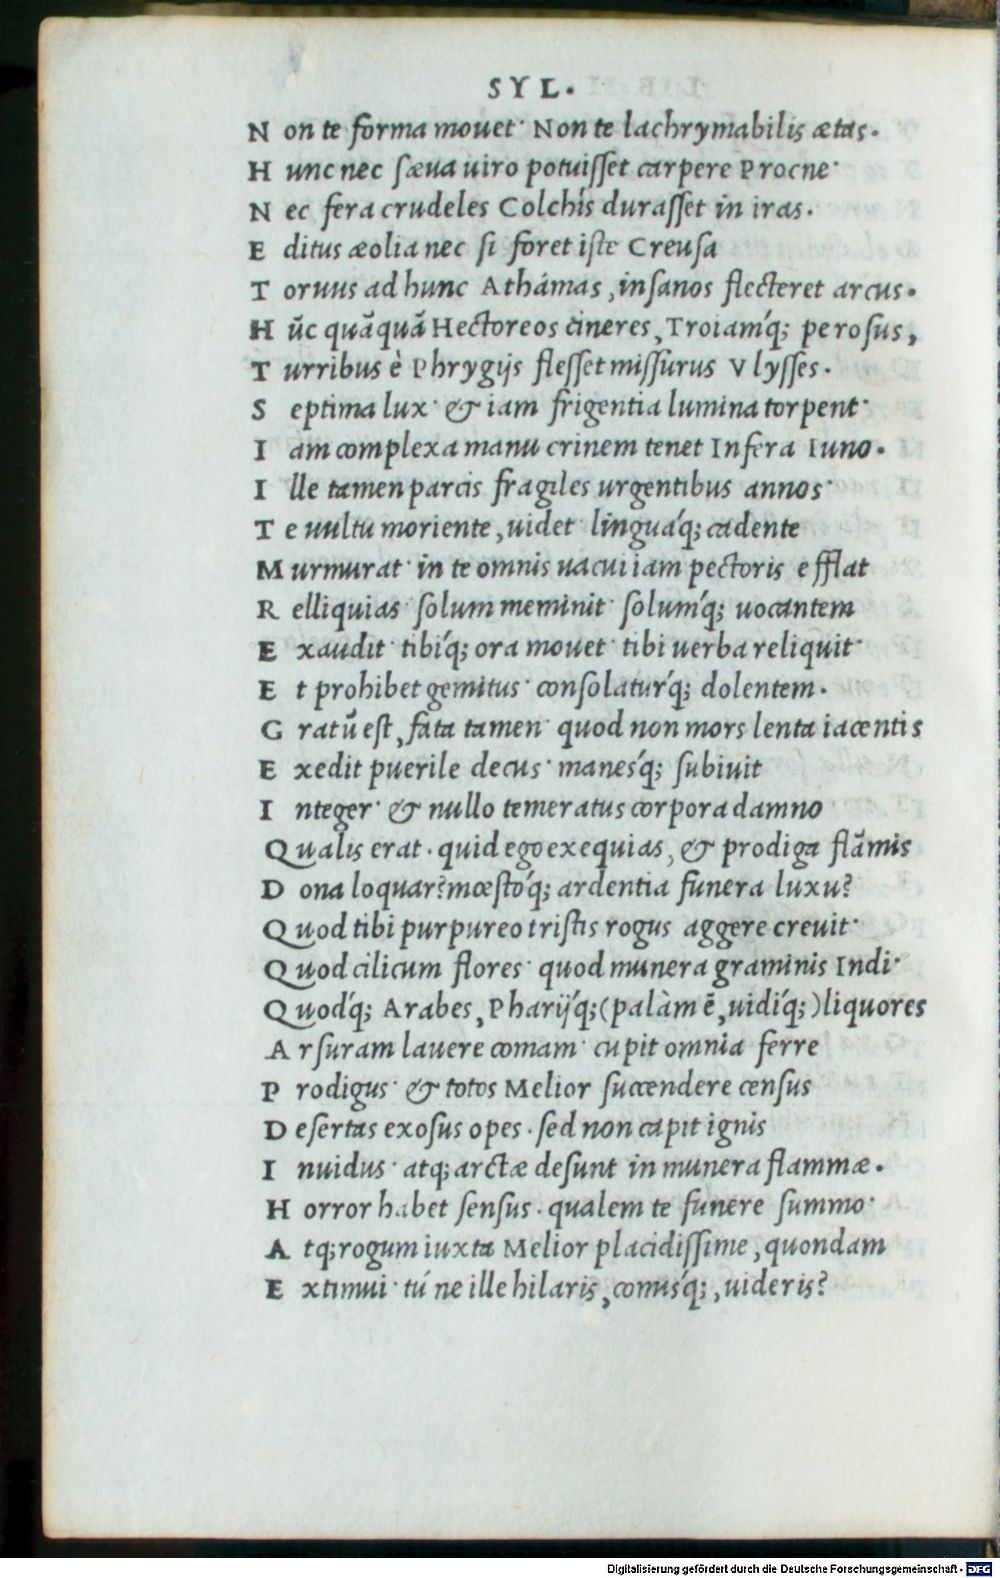 SYL.
N on te forma mouet· Non te lachrymabilis ætas.
H unc nec sæua uiro potuisset carpere Procne·
N ec fera crudeles Colchis durasset in iras.
E ditus æolia nec si foret iste Creusa
T oruus ad hunc Athámas, insanos flecteret arcus.
H ūc quāquā Hectoreos cineres, Troiamq́; perosus,
T urribus è Phrygijs flesset missurus Vlysses.
S eptima lux· & iam frigentia lumina torpent·
I am complexa manu crinem tenet Infera Iuno.
I lle tamen parcis fragiles urgentibus annos·
T e uultu moriente, uidet linguaq́; cadente
M urmurat· in te omnis uacui iam pectoris efflat
R elliquias· solum meminit· solumq́; uocantem
E xaudit· tibiq́; ora mouet· tibi uerba reliquit·
E t prohibet gemitus· consolaturq́; dolentem.
G ratū est, fata tamen· quod non mors lenta iacentis
E xedit puerile decus· manesq́; subiuit
I nteger· & nullo temeratus corpora damno
Q ualis erat. quid ego exequias, & prodiga flāmis
D ona loquar? mœstoq́; ardentia funera luxu?
Q uod tibi purpureo tristis rogus aggere creuit·
Q uod cilicum flores· quod munera graminis Indi·
Q uodq́; Arabes, Pharijq́; (palàm ē, uidiq́;) liquores
A rsuram lauere comam· cupit omnia ferre
P rodigus· & totos Melior succendere census
D esertas exosus opes. sed non capit ignis
I nuidus· atq; arctæ desunt in munera flammæ.
H orror habet sensus. qualem te funere summo·
A tq; rogum iuxta Melior placidissime, quondam
E xtimui· tú ne ille hilaris, comusq́;, uideris?
Digitalisierung gefördert durch die Deutsche Forschungsgemeinschaft - DFG